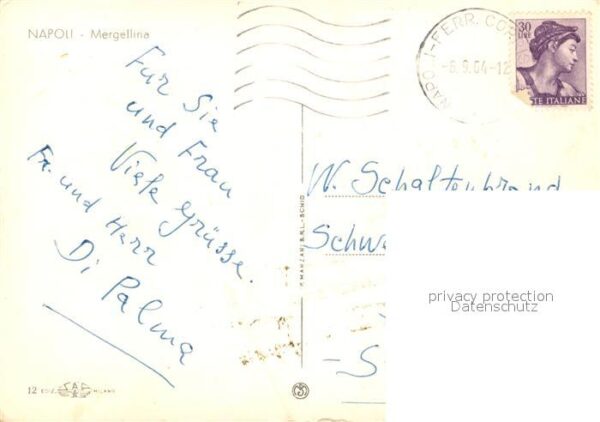 NAPOLI - Mergellina
Für Sie
und Frau
Viele Grüsse.
Fr. und Herr
Di Palma
NAPOLI-FERR. COR
-6.9.64-12
30
LIRE
STE ITALIANE
W. Schaltenbrand
Schw
-S
privacy protection
Datenschutz
12 EDIZ. MILANO